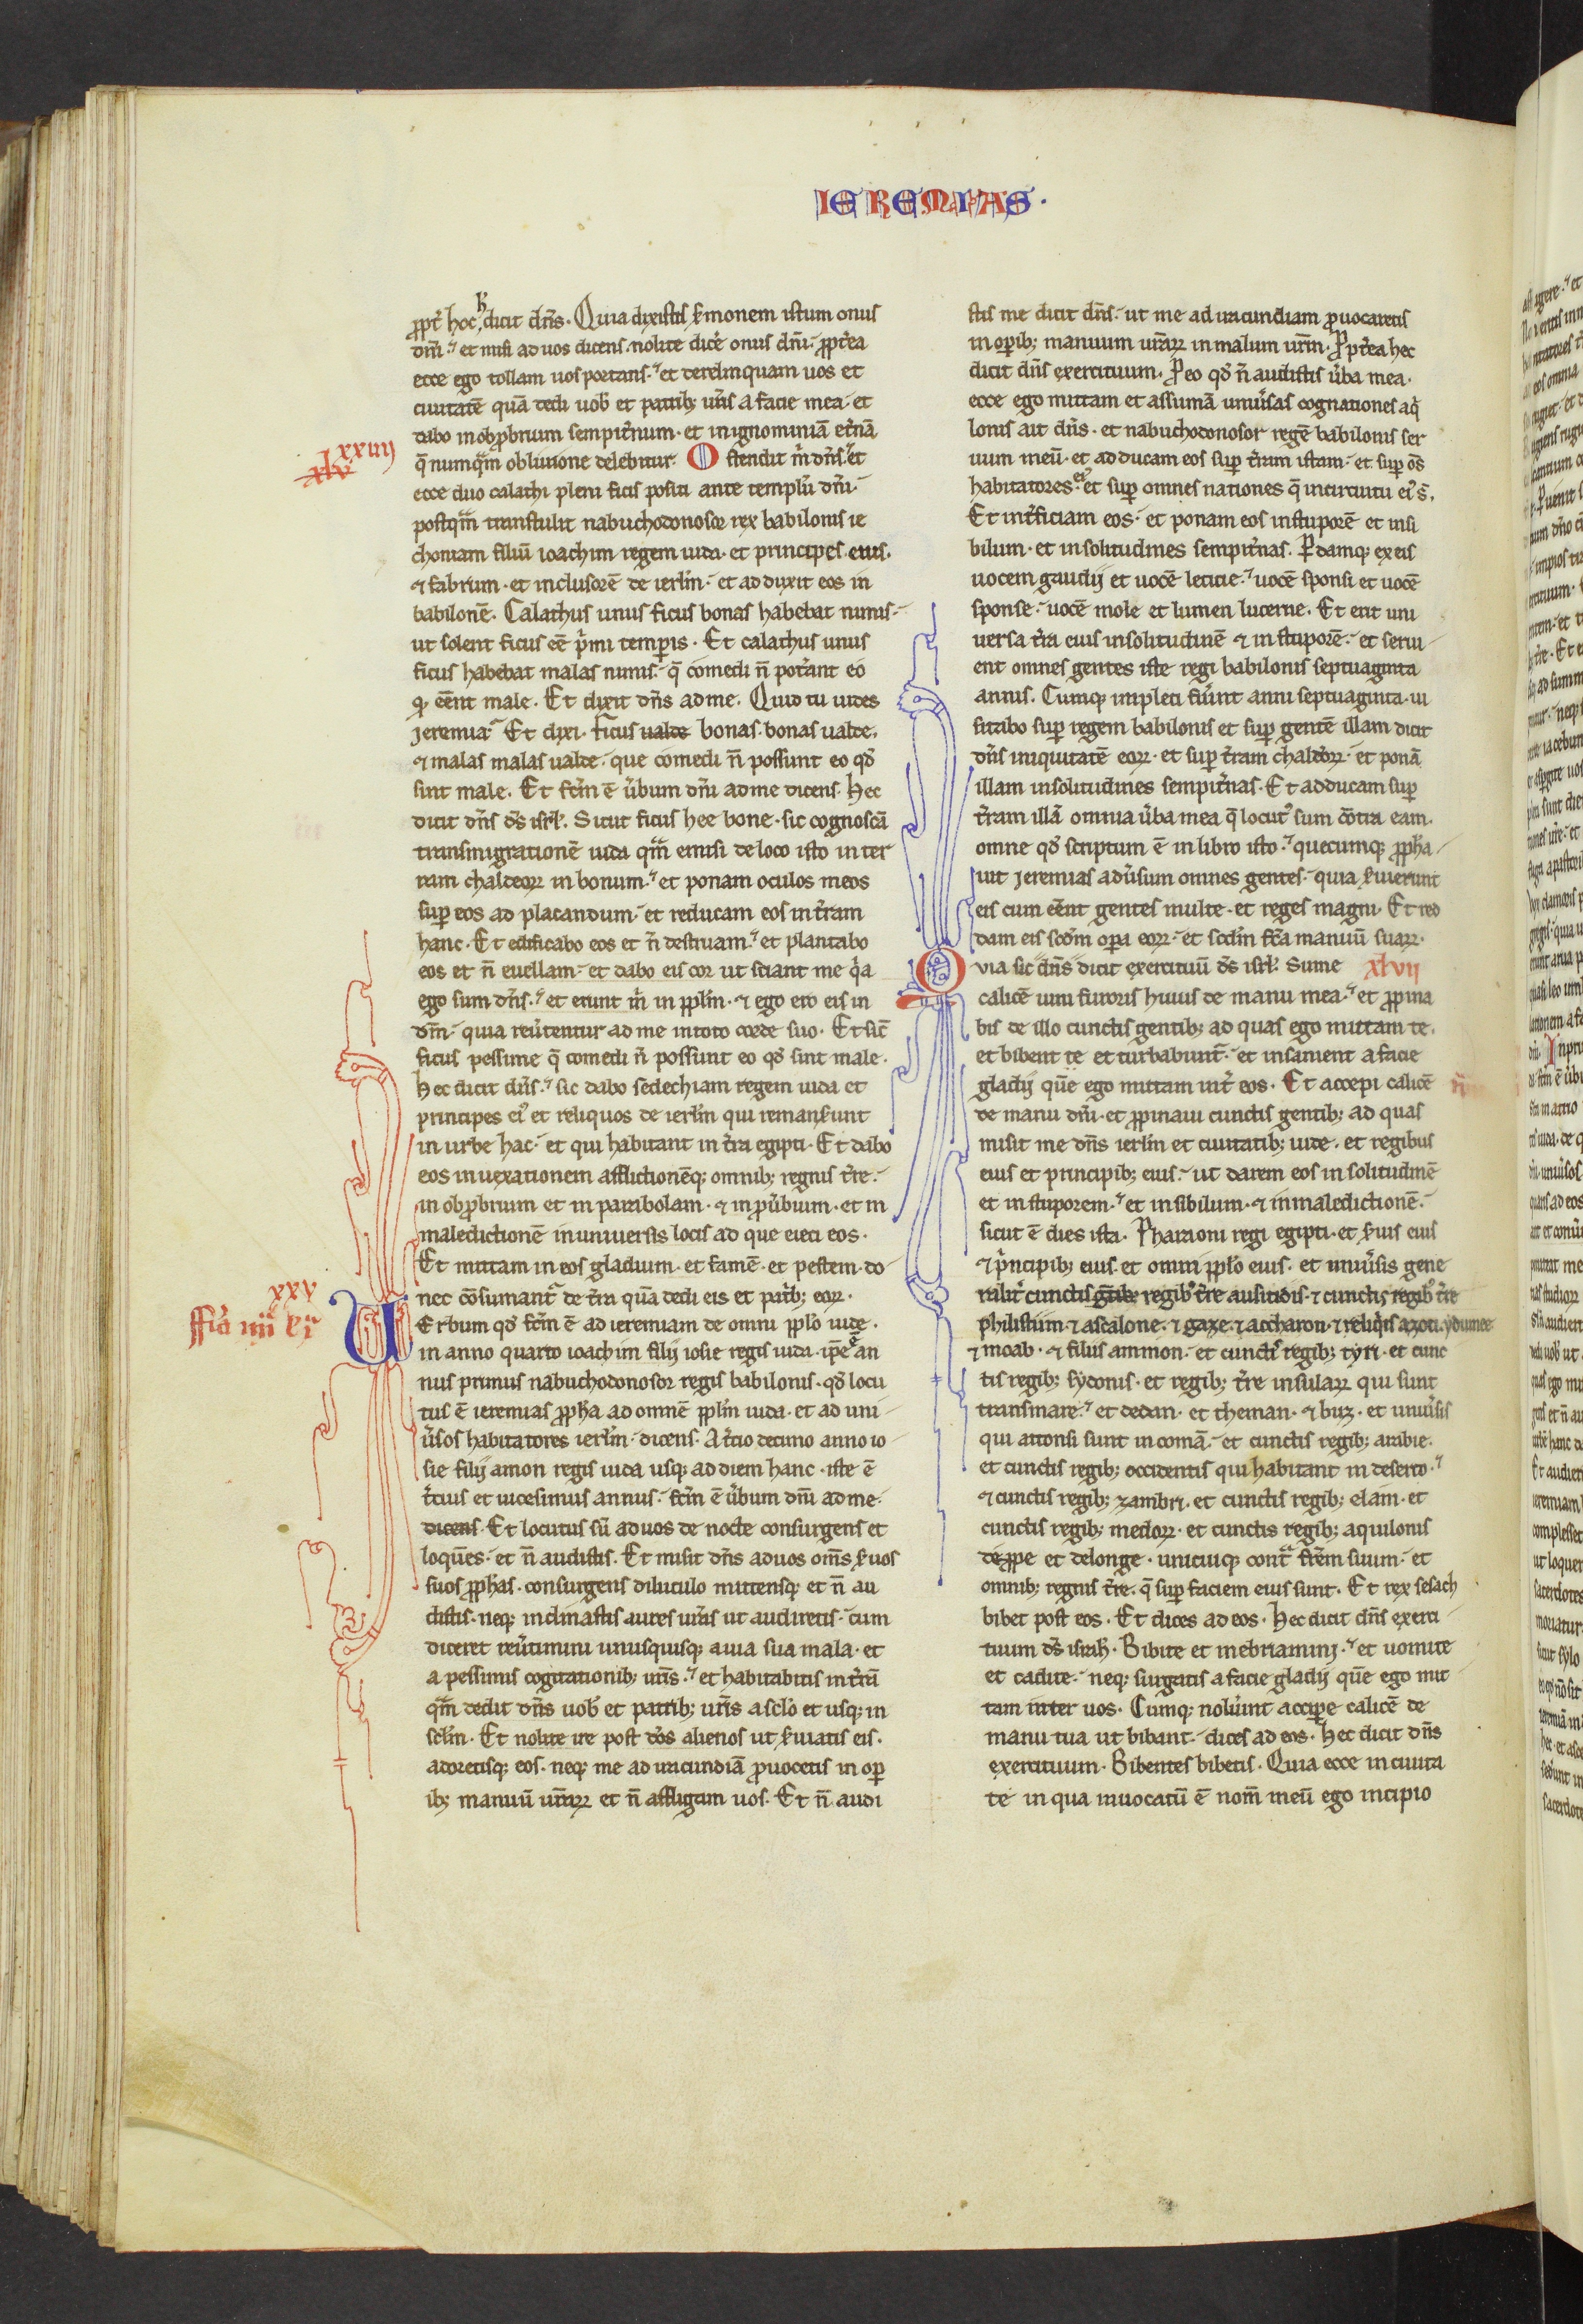 IEREMIAS·
ꝓpt̄ hoc h̄ dicit dn̄s. Quia dixistis s̄monem istum onus
dn̄i. et misi ad uos dicens. nolite dic̄e onus dn̄i. ꝓpt̄ea
ecce ego tollam uos portans. et derelinquam uos et
ciuitatē quā dedi uob̄ et patrib; ur̄is a facie mea. et
dabo in obꝓbrium sempit̄num. et in ignominiā et̄nā
xxiiij
xlv
q̄ numq̄m obliuione delebitur. Ostendit m̄ dn̄s. et
ecce duo calathi pleni ficis positi ante templū dn̄i.
postq̄m transtulit nabuchodonosor rex babilonis ie
choniam filiū ioachim regem iuda. et principes eius.
⁊ fabrum. et inclusorē de ierl̄m. et adduxit eos in
babilonē. Calathus unus ficus bonas habebat nimis.
ut solent ficus eē p̄mi temꝑis. Et calathus unus
ficus habebat malas nimis. q̄ comedi n̄ pot̄ant eo
q; eēnt male. Et dixit dn̄s ad me. Quid tu uides
Jeremia. Et dixi. ficus ualde bonas. bonas ualde.
⁊ malas malas ualde. que comedi n̄ possunt eo qd̄
sint male. Et fc̄m ē ūbum dn̄i ad me dicens. Hec
dicit dn̄s ds̄ isrl̄. Sicut ficus hee bone. sic cognoscā
transmigrationē iuda q̄m emisi de loco isto in ter
ram chaldeoꝝ in bonum. et ponam oculos meos
suꝑ eos ad placandum. et reducam eos in t̄ram
hanc. Et edificabo eos et n̄ destruam. et plantabo
eos et n̄ euellam. et dabo eis cor ut sciant me q̄a
ego sum dn̄s. et erunt m̄ in ppl̄m. ⁊ ego ero eis in
dm̄. quia reūtentur ad me in toto corde suo. Et sic̄
ficus pessime q̄ comedi n̄ possunt eo qd̄ sint male.
hec dicit dn̄s. sic dabo sedechiam regem iuda et
principes ei᷒ et reliquos de ierl̄m qui remans̄unt
in urbe hac. et qui habitant in t̄ra egipti. Et dabo
eos in uexationem afflictionēq; omnib; regnis t̄re.
in obꝓbrium et in parabolam. ⁊ in ꝓūbium. et in
maledictionē in uniuersis locis ad que eieci eos.
Et mittam in eos gladium. et famē. et pestem. do
nec cōsumant̄ de t̄ra quā dedi eis et pat̄b; eoꝝ.
xxv
ffīa iiij kī
UErbum qd̄ fc̄m ē ad ieremiam de omni pplo iude.
in anno quarto ioachim filij iosie regis iuda. ip̄e ē an
nus primus nabuchodonosor regis babilonis. qd̄ locu
tus ē ieremias ꝓpha ad omnē ppl̄m iuda. et ad uni
ūsos habitatores ierl̄m. dicens. A t̄cio decimo anno io
sie filij amon regis iuda usq; ad diem hanc. iste ē
t̄cius et uicesimus annus. fc̄m ē ūbum dn̄i ad me.
dicens. Et locutus sū ad uos de nocte consurgens et
loquēs. et n̄ audistis. Et misit dn̄s ad uos om̄s s̄uos
suos ꝓphas. consurgens diluculo mittensq; et n̄ au
distis. neq; inclinastis aures ur̄as ut audiretis. cum
diceret reūtimini unusquisq; a uia sua mala. et
a pessimis cogitationib; ur̄is. et habitabitis in t̄rā
q̄m dedit dn̄s uob̄ et patrib; ur̄is a sclo et usq; in
scl̄m. Et nolite ire post dōs alienos ut s̄uiatis eis.
adoretisq; eos. neq; me ad iracundiā ꝓuocetis in oꝑ
ib; manuū ur̄aꝝ et n̄ affligam uos. Et n̄ audi
stis me dicit dn̄s. ut me ad iracundiam ꝓuocaretis
in oꝑib; manuum ur̄aꝝ in malum ur̄m. Ꝓpt̄ea hec
dicit dn̄s exercituum. Ꝓ eo qd̄ n̄ audistis ūba mea.
ecce ego mittam et assumā uniūsas cognationes aq̄
lonis ait dn̄s. et nabuchodonosor regē babilonis ser
uum meū. et adducam eos suꝑ t̄ram istam. et suꝑ os̄
habitatores ei᷒. et suꝑ omnes nationes q̄ in circuitu ei᷒ s̄.
Et int̄ficiam eos. et ponam eos in stuporē et insi
bilum. et in solitudines sempit̄nas. Ꝑdamq; ex eis
uocem gaudij et uocē leticie. uocē sponsi et uocē
sponse. uocē mole et lumen lucerne. Et erit uni
uersa t̄ra eius in solitudinē ⁊ in stuporē. et serui
ent omnes gentes iste regi babilonis septuaginta
annis. Cumq; impleti fūint anni septuaginta. ui
sitabo suꝑ regem babilonis et suꝑ gentē illam dicit
dn̄s iniquitatē eoꝝ. et suꝑ t̄ram chaldeoꝝ. et ponā
illam in solitudines sempit̄nas. Et adducam suꝑ
t̄ram illā omnia ūba mea q̄ locut᷒ sum cōtra eam.
omne qd̄ scriptum ē in libro isto. quecumq; ꝓpha
uit Jeremias adūsum omnes gentes. quia s̄uierunt
eis cum eēnt gentes multe. et reges magni. Et red
dam eis sc̄dm oꝑa eoꝝ. et sc̄dm fc̄a manuū suaꝝ.
Quia sic dn̄s dicit exercituū ds̄ isrl̄. Sume xlvii
calicē uini furoris huius de manu mea. et ꝓpina
bis de illo cunctis gentib; ad quas ego mittam te.
et bibent te et turbabunt̄. et insanient a facie
gladij quē ego mittam int̄ eos. Et accepi calicē
de manu dn̄i. et ꝓpinaui cunctis gentib; ad quas
misit me dn̄s ierl̄m et ciuitatib; iude. et regibus
eius et principib; eius. ut darem eos in solitudinē
et in stuporem. et in sibilum. ⁊ in maledictionē.
sicut ē dies ista. Pharaoni regi egipti. et s̄uis eius
⁊ p̄ncipib; eius. et omni pplo eius. et uniūsis gene
ralit̄ cunctis gētib; regib᷒ t̄re ausitidis. ⁊ cunctis regib᷒ t̄re
philistiim. ⁊ ascalone. ⁊ gaze. ⁊ accharon. ⁊ reliq̄is azoti. ydumee
⁊ moab. ⁊ filiis ammon. et cunctis regib; tyri. et cunc
tis regib; sydonis. et regib; t̄re insulaꝝ qui sunt
trans mare. et dedan. et theman. ⁊ buz. et uniūsis
qui attonsi sunt in comā. et cunctis regib; arabie.
et cunctis regib; occidentis qui habitant in deserto.
⁊ cunctis regib; zambri. et cunctis regib; elam. et
cunctis regib; medoꝝ. et cunctis regib; aquilonis
de ꝓpe et de longe. unicuiq; cont̄ fr̄em suum. et
omnib; regnis t̄re. q̄ suꝑ faciem eius sunt. Et rex sesach
bibet post eos. Et dices ad eos. Hec dicit dn̄s exerci
tuum ds̄ israh̄l. Bibite et inebriamini. et uomite
et cadite. neq; surgatis a facie gladij quē ego mit
tam inter uos. Cumq; nolūint acciꝑe calicē de
manu tua ut bibant. dices ad eos. Hec dicit dn̄s
exercituum. Bibentes bibetis. Quia ecce in ciuita
te in qua inuocatū ē nom̄ meū ego incipio